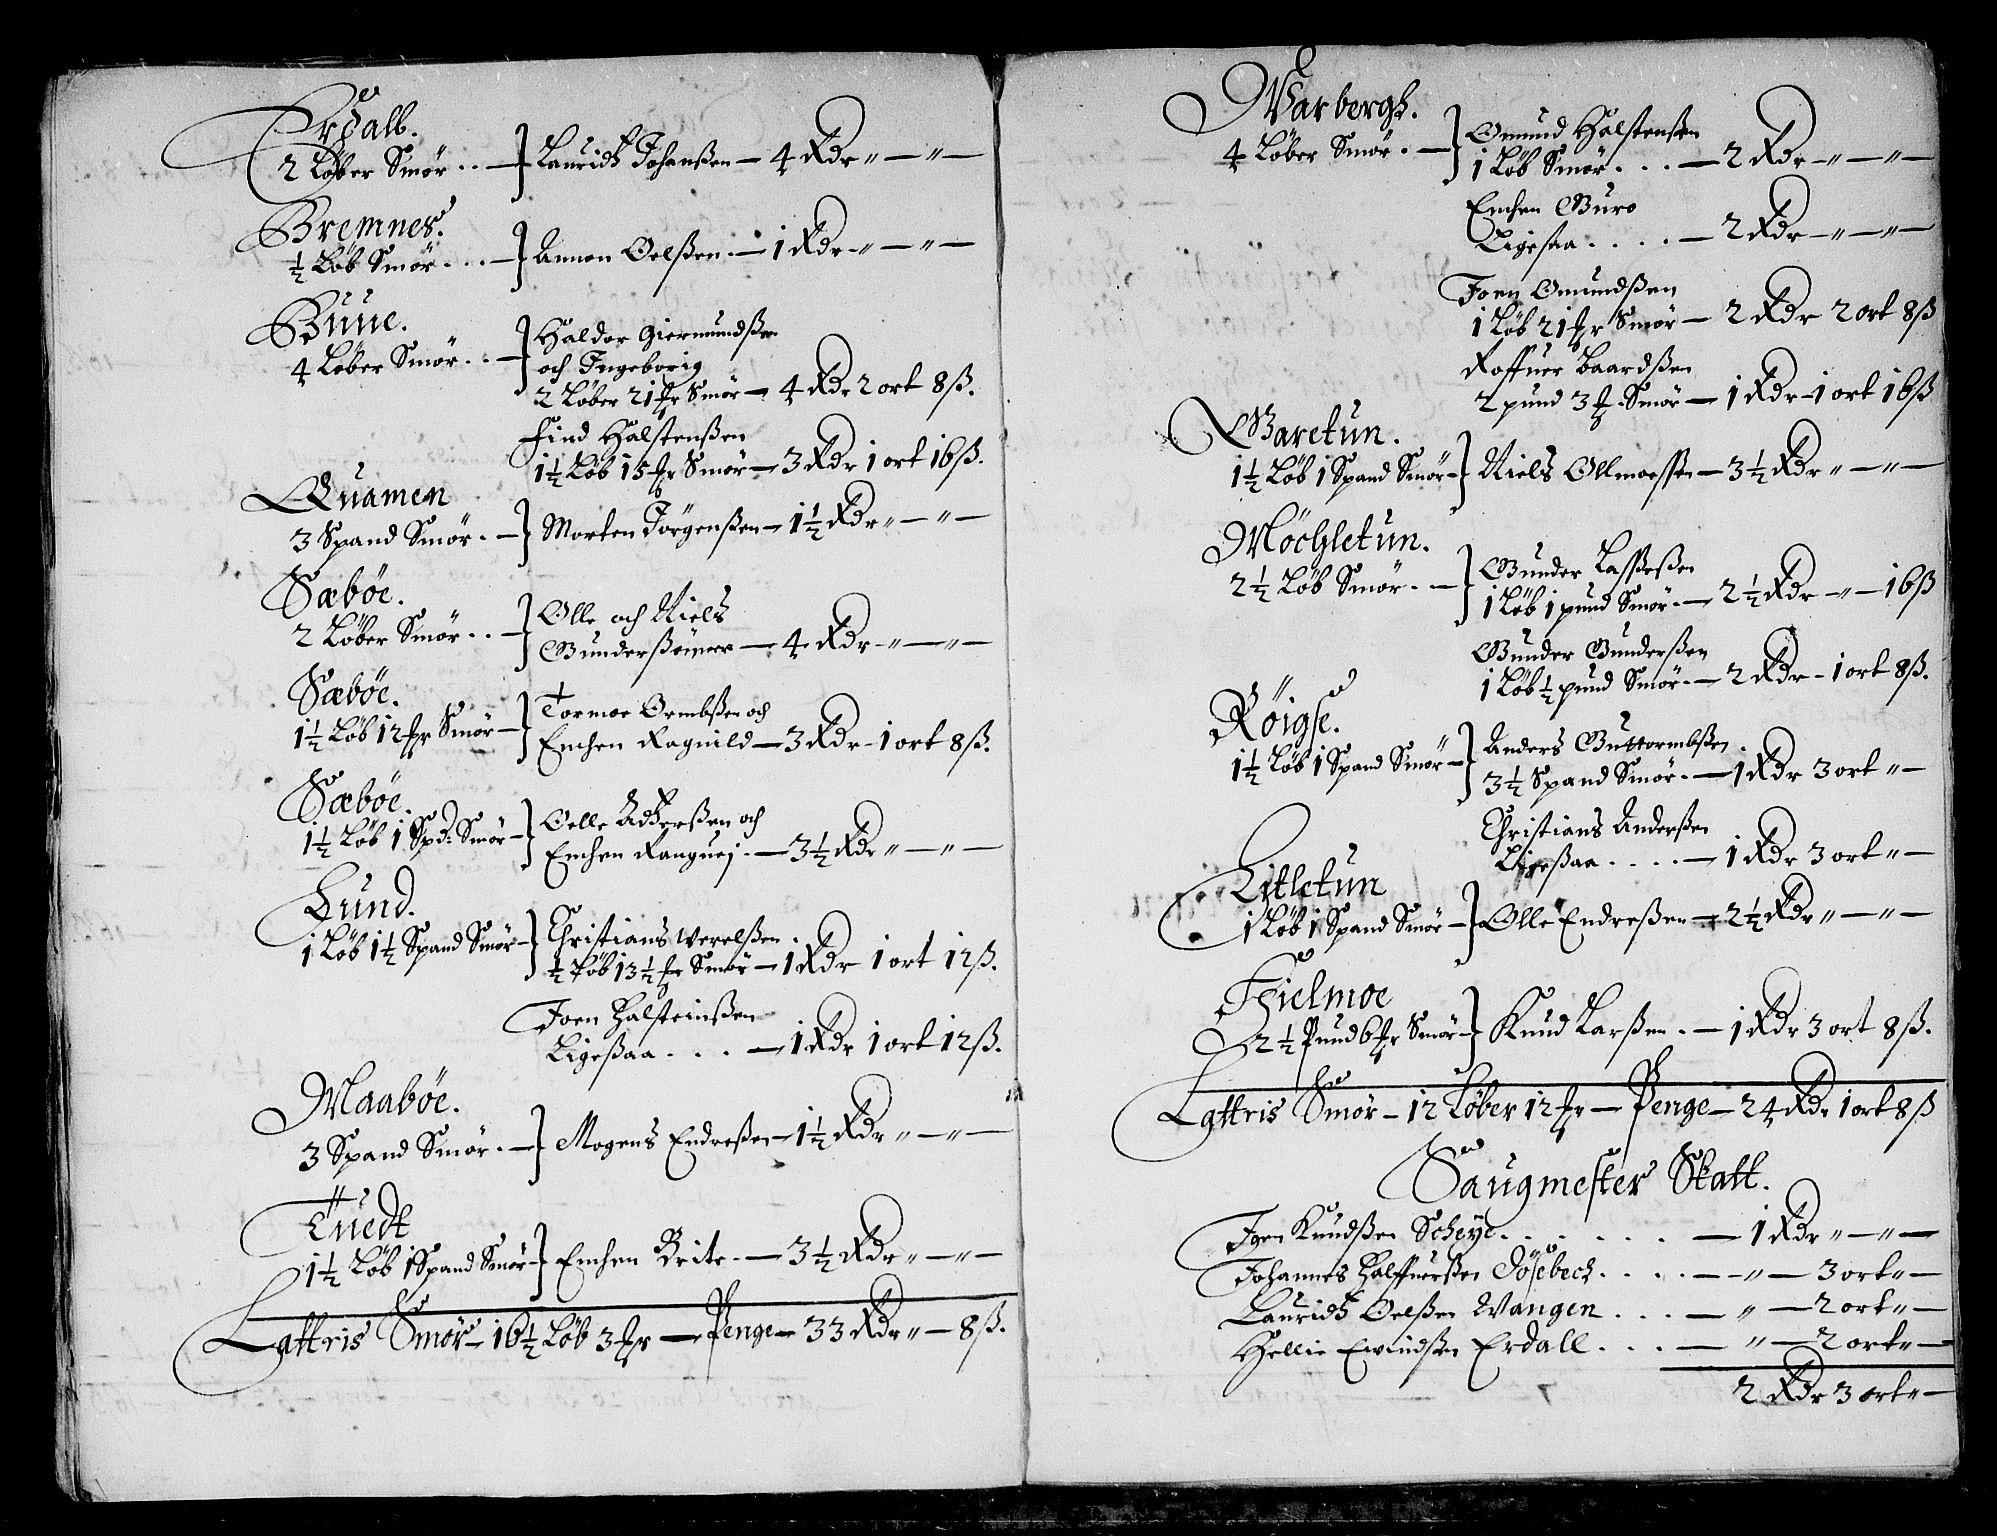 Erdall.
2 Løber Smør . . — } Lauridtz Johanßen — 4 Rdr „ — „ —
Bremnes.
½ Løb Smør . . . — } Annon Oelßen . — 1 Rdr „ — „ —
Büüe.
4 Løber Smør . . — } Haldor Giermundßen
och Ingeborig
2 Løber 21 ʄr Smør — 4 Rdr 2 ort 8 ß.
Find Halstenßen
1½ Løb 15 ʄr Smør — 3 Rdr 1 ort 16 ß.
Quamen
3 Spand Smør . — } Morten Jörgenßen — 1½ Rdr „ — „ —
Sæbøe.
2 Løber Smør . . — } Olle och Niels
Gunderßönner — 4 Rdr „ — „ —
Sæbøe.
1½ Løb 12 ʄr Smør — } Tormoe Ormbßen och
Enchen Ragnild — 3 Rdr - 1 ort 8 ß.
Sæbøe.
1½ Løb 1 Spd: Smør — } Oelle Adtzerßen och
Enchen Ranguej . — 3½ Rdr „ — „ —
Lund.
1 Løb 1½ Spand Smør — } Christians Werelßen .
½ Løb 13½ ʄr Smør — 1 Rdr 1 ort 12 ß.
Joen Halsteinßen
Ligeßaa . . . — 1 Rdr 1 ort 12 ß.
Maabøe.
3 Spand Smør . — } Mogens Endreßen — 1½ Rdr „ — „ —
Tuedt
1½ Løb 1 Spand Smør — } Enchen Brite . — 3½ Rdr „ — „ —
Lattris Smør — 16½ Løb 3 ʄr — Penge — 33 Rdr „ — 8 ß.
Warbergh.
4 Løber Smør . — } Omund Halstenßen
1 Løb Smør . . . — 2 Rdr „ — „ —
Enchen Guro
Ligesaa . . . . — 2 Rdr — „ — „ —
Joen Omundßen
1 Løb 21 ʄr Smør — 2 Rdr 2 ort 8 ß
Roffuer Baardßen
2 pund 3 ʄ. Smør — 1 Rdr - 1 ort 16 ß
Garetun.
1½ Løb 1 Spand Smør — } Niels Ollmoessen — 3½ Rdr „ — „ —
Möchletun.
2½ Løb Smør . — } Gunder Lasseßen
1 Løb 1 pund Smør . — 2½ Rdr — „ — 16 ß
Gunder Gunderßen
1 Løb ½ pund Smør . — 2 Rdr - 1 ort 8 ß.
Röigse.
1½ Løb 1 Spand Smør — } Anders Guttormbßen .
3½ Spand Smør . — 1 Rdr 3 ort „ —
Christians Anderßen
Ligeßaa . . . . — 1 Rdr 3 ort „ —
Litletun
1 Løb 1 Spand Smør — } Olle Endreßen — 2½ Rdr „ — „ —
Thielmoe
2½ Pund 6 ʄr Smør — } Knud Larßen . — 1 Rdr 3 ort 8 ß.
Lattris Smør — 12 Løber 12 ʄr — Penge — 24 Rdr 1 ort 8 ß
Saugmester Skatt.
Joen Knudßen Scheye . . . . . . — 1 Rdr „ — „ —
Johannes Halffuerßen Jösebech . . . . — „ — 3 ort „ —
Lauridtz Oelßen Wangen . . . — „ — 2 ort „ —
Hellie Ewindßen Erdall . . . — „ — 2 ort „ —
2 Rdr 3 ort „ —